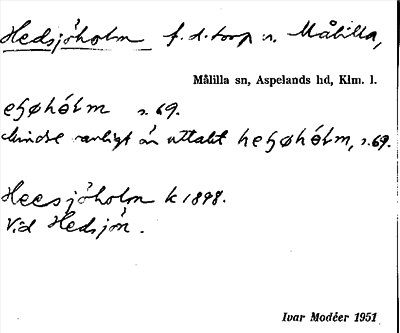 Hedsjöholm f. d. torp n. Målilla,
Målilla sn, Aspelands hd, Klm. l.
eʃøhólm s. 69.
Mindre vanligt är uttalet heʃøhólm, s. 69.
Heesjöholm k 1898.
Vid Hedsjön.
Ivar Modéer 1951